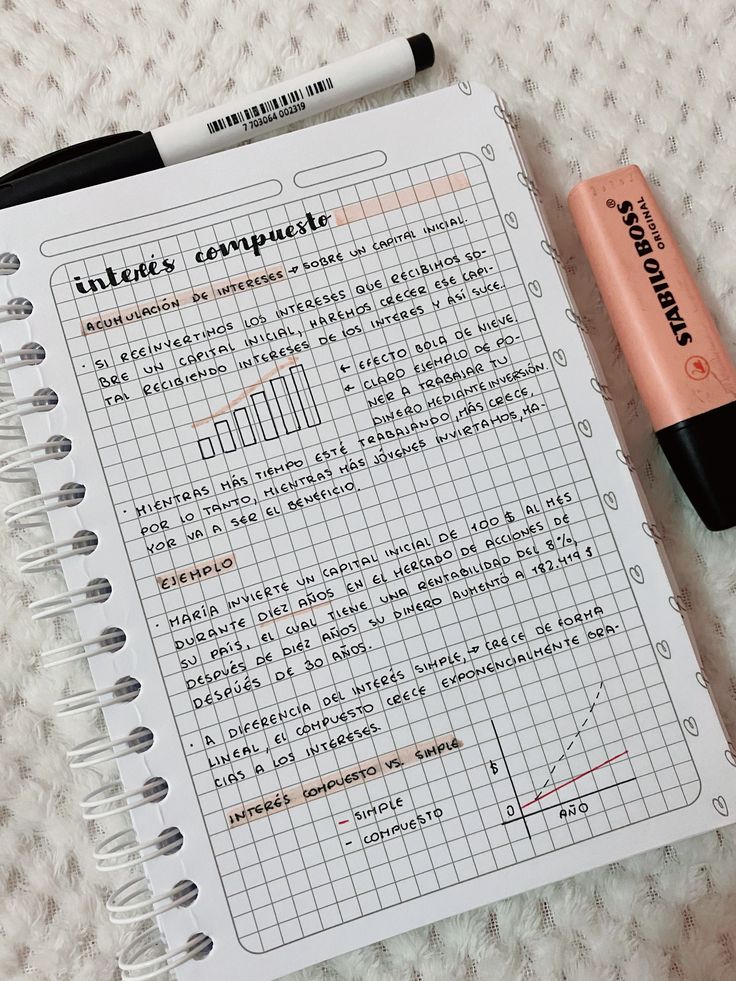 7 703064 002319
STABILO BOSS®
ORIGINAL
interés compuesto
ACUMULACIÓN DE INTERESES → SOBRE UN CAPITAL INICIAL.
• SI REEINVERTIMOS LOS INTERESES QUE RECIBIMOS SO-
BRE UN CAPITAL INICIAL, HAREMOS CRECER ESE CAPI-
TAL RECIBIENDO INTERESES DE LOS INTERÉS Y ASÍ SUCE.
← EFECTO BOLA DE NIEVE.
← CLARO EJEMPLO DE PO-
NER A TRABAJAR TU
DINERO MEDIANTE INVERSIÓN.
• MIENTRAS MÁS TIEMPO ESTÉ TRABAJANDO, MÁS CRECE,
POR LO TANTO, MIENTRAS MÁS JÓVENES INVIRTAMOS, MA-
YOR VA A SER EL BENEFICIO.
EJEMPLO
• MARÍA INVIERTE UN CAPITAL INICIAL DE 100 $ AL MES
DURANTE DIEZ AÑOS EN EL MERCADO DE ACCIONES DE
SU PAÍS, EL CUAL TIENE UNA RENTABILIDAD DEL 8%,
DESPUÉS DE DIEZ AÑOS SU DINERO AUMENTÓ A 182.419 $
DESPÚES DE 30 AÑOS.
• A DIFERENCIA DEL INTERÉS SIMPLE, → CRECE DE FORMA
LINEAL, EL COMPUESTO CRECE EXPONENCIALMENTE GRA-
CIAS A LOS INTERESES.
INTERÉS COMPUESTO VS. SIMPLE
– SIMPLE
- COMPUESTO
$
0
AÑO